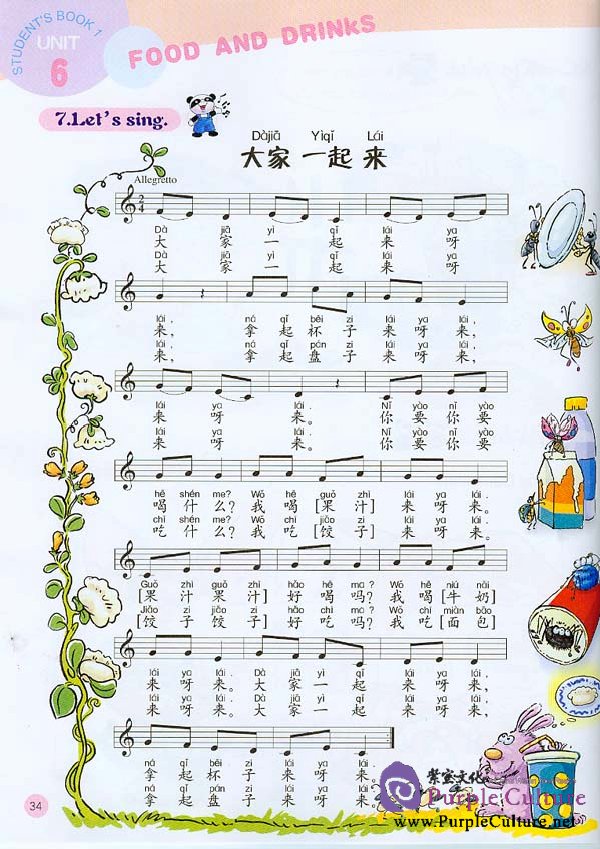 STUDENT'S BOOK 1
UNIT
6
FOOD AND DRINKS
7.Let's sing.
Dàjiā Yìqǐ Lái
大家 一起 来
Allegretto
2
4
Dà jiā yì qǐ lái ya
大 家 一 起 来 呀
Dà jiā yì qǐ lái ya
大 家 一 起 来 呀
lái, ná qǐ bēi zi lái ya lái,
来, 拿 起 杯 子 来 呀 来,
lái, ná qǐ pán zi lái ya lái,
来, 拿 起 盘 子 来 呀 来,
lái ya lái. Nǐ yào nǐ yào
来 呀 来。 你 要 你 要
lái ya lái. Nǐ yào nǐ yào
来 呀 来。 你 要 你 要
hē shén me? Wǒ hē guǒ zhī lái ya lái.
喝 什 么? 我 喝 [果 汁] 来 呀 来。
chī shén me? Wǒ chī jiǎo zi lái ya lái.
吃 什 么? 我 吃 [饺 子] 来 呀 来。
Guǒ zhī guǒ zhī hǎo hē ma? Wǒ hē niú nǎi
[果 汁 果 汁] 好 喝 吗? 我 喝 [牛 奶]
Jiǎo zi jiǎo zi hǎo chī ma? Wǒ chī miàn bāo
[饺 子 饺 子] 好 吃 吗? 我 吃 [面 包]
lái ya lái. Dà jiā yì qǐ lái ya lái,
来 呀 来。 大 家 一 起 来 呀 来,
lái ya lái. Dà jiā yì qǐ lái ya lái,
来 呀 来。 大 家 一 起 来 呀 来,
ná qǐ bēi zi lái ya lái.
拿 起 杯 子 来 呀 来。
ná qǐ pán zi lái ya lái.
拿 起 盘 子 来 呀 来。
34
紫宝文化
Purple Culture
www.PurpleCulture.net